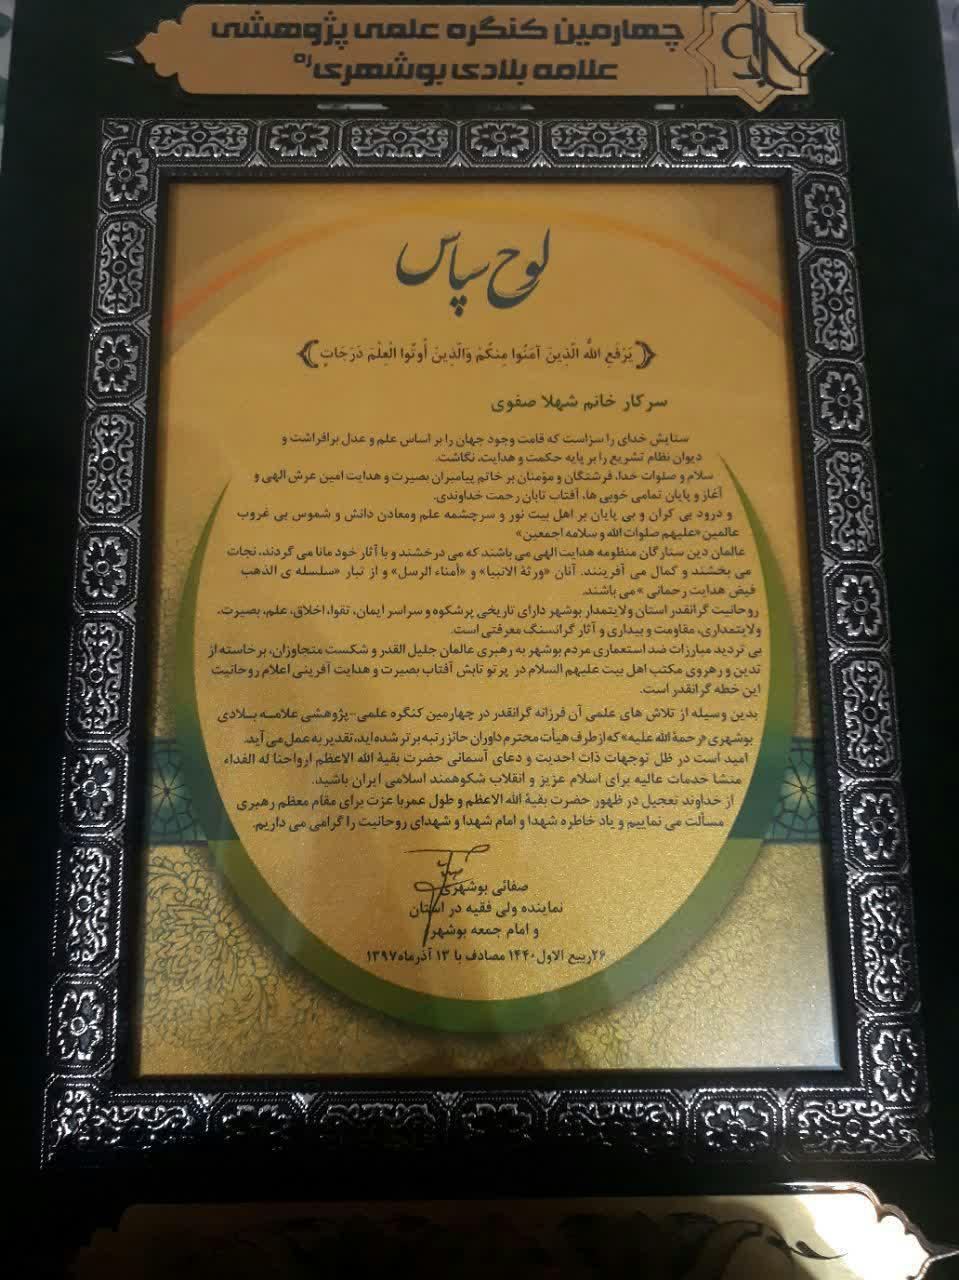 چهارمین کنگره علمی پژوهشی
علامه بلادی بوشهری ره
لوح سپاس
﴿ یَرْفَعِ اللَّه الَّذِینَ آمَنُوا مِنکُمْ وَالَّذِینَ أُوتُوا الْعِلْمَ دَرَجَاتٍ ﴾
سرکار خانم شهلا صفوی
ستایش خدای را سزاست که قامت وجود جهان را بر اساس علم و عدل برافراشت و
دیوان نظام تشریع را بر پایه حکمت و هدایت، نگاشت.
سلام و صلوات خدا، فرشتگان و مؤمنان بر خاتم پیامبران بصیرت و هدایت امین عرش الهی و
آغاز و پایان تمامی خوبی ها، آفتاب تابان رحمت خداوندی.
و درود بی کران و بی پایان بر اهل بیت نور و سرچشمه علم ومعادن دانش و شموس بی غروب
عالمین«علیهم صلوات الله و سلامه اجمعین»
عالمان دین ستارگان منظومه هدایت الهی می باشند که می درخشند و با آثار خود مانا می گردند، نجات
می بخشند و کمال می آفرینند. آنان «ورثة الانبیا» و «أمناء الرسل» و از تبار «سلسله ی الذهب
فیض هدایت رحمانی » می باشند.
روحانیت گرانقدر استان ولایتمدار بوشهر دارای تاریخی پرشکوه و سراسر ایمان، تقوا، اخلاق، علم، بصیرت،
ولایتمداری، مقاومت و بیداری و آثار گرانسنگ معرفتی است.
بی تردید مبارزات ضد استعماری مردم بوشهر به رهبری عالمان جلیل القدر و شکست متجاوزان، برخاسته از
تدین و رهروی مکتب اهل بیت علیهم السلام در پرتو تابش آفتاب بصیرت و هدایت آفرینی اعلام روحانیت
این خطه گرانقدر است.
بدین وسیله از تلاش های علمی آن فرزانه گرانقدر در چهارمین کنگره علمی-پژوهشی علامه بلادی
بوشهری«رحمة الله علیه»که از طرف هیأت محترم داوران حائز رتبه برتر شده اید، تقدیر به عمل می آید.
امید است در ظل توجهات ذات احدیت و دعای آسمانی حضرت بقیة الله الاعظم ارواحنا له الفداء
منشا خدمات عالیه برای اسلام عزیز و انقلاب شکوهمند اسلامی ایران باشید.
از خداوند تعجیل در ظهور حضرت بقیة الله الاعظم و طول عمربا عزت برای مقام معظم رهبری
مسألت می نماییم و یاد خاطره شهدا و امام شهدا و شهدای روحانیت را گرامی می داریم.
صفائی بوشهری
نماینده ولی فقیه در استان
و امام جمعه بوشهر
۲۶ربیع الاول۱۴۴۰ مصادف با ۱۳ آذرماه۱۳۹۷